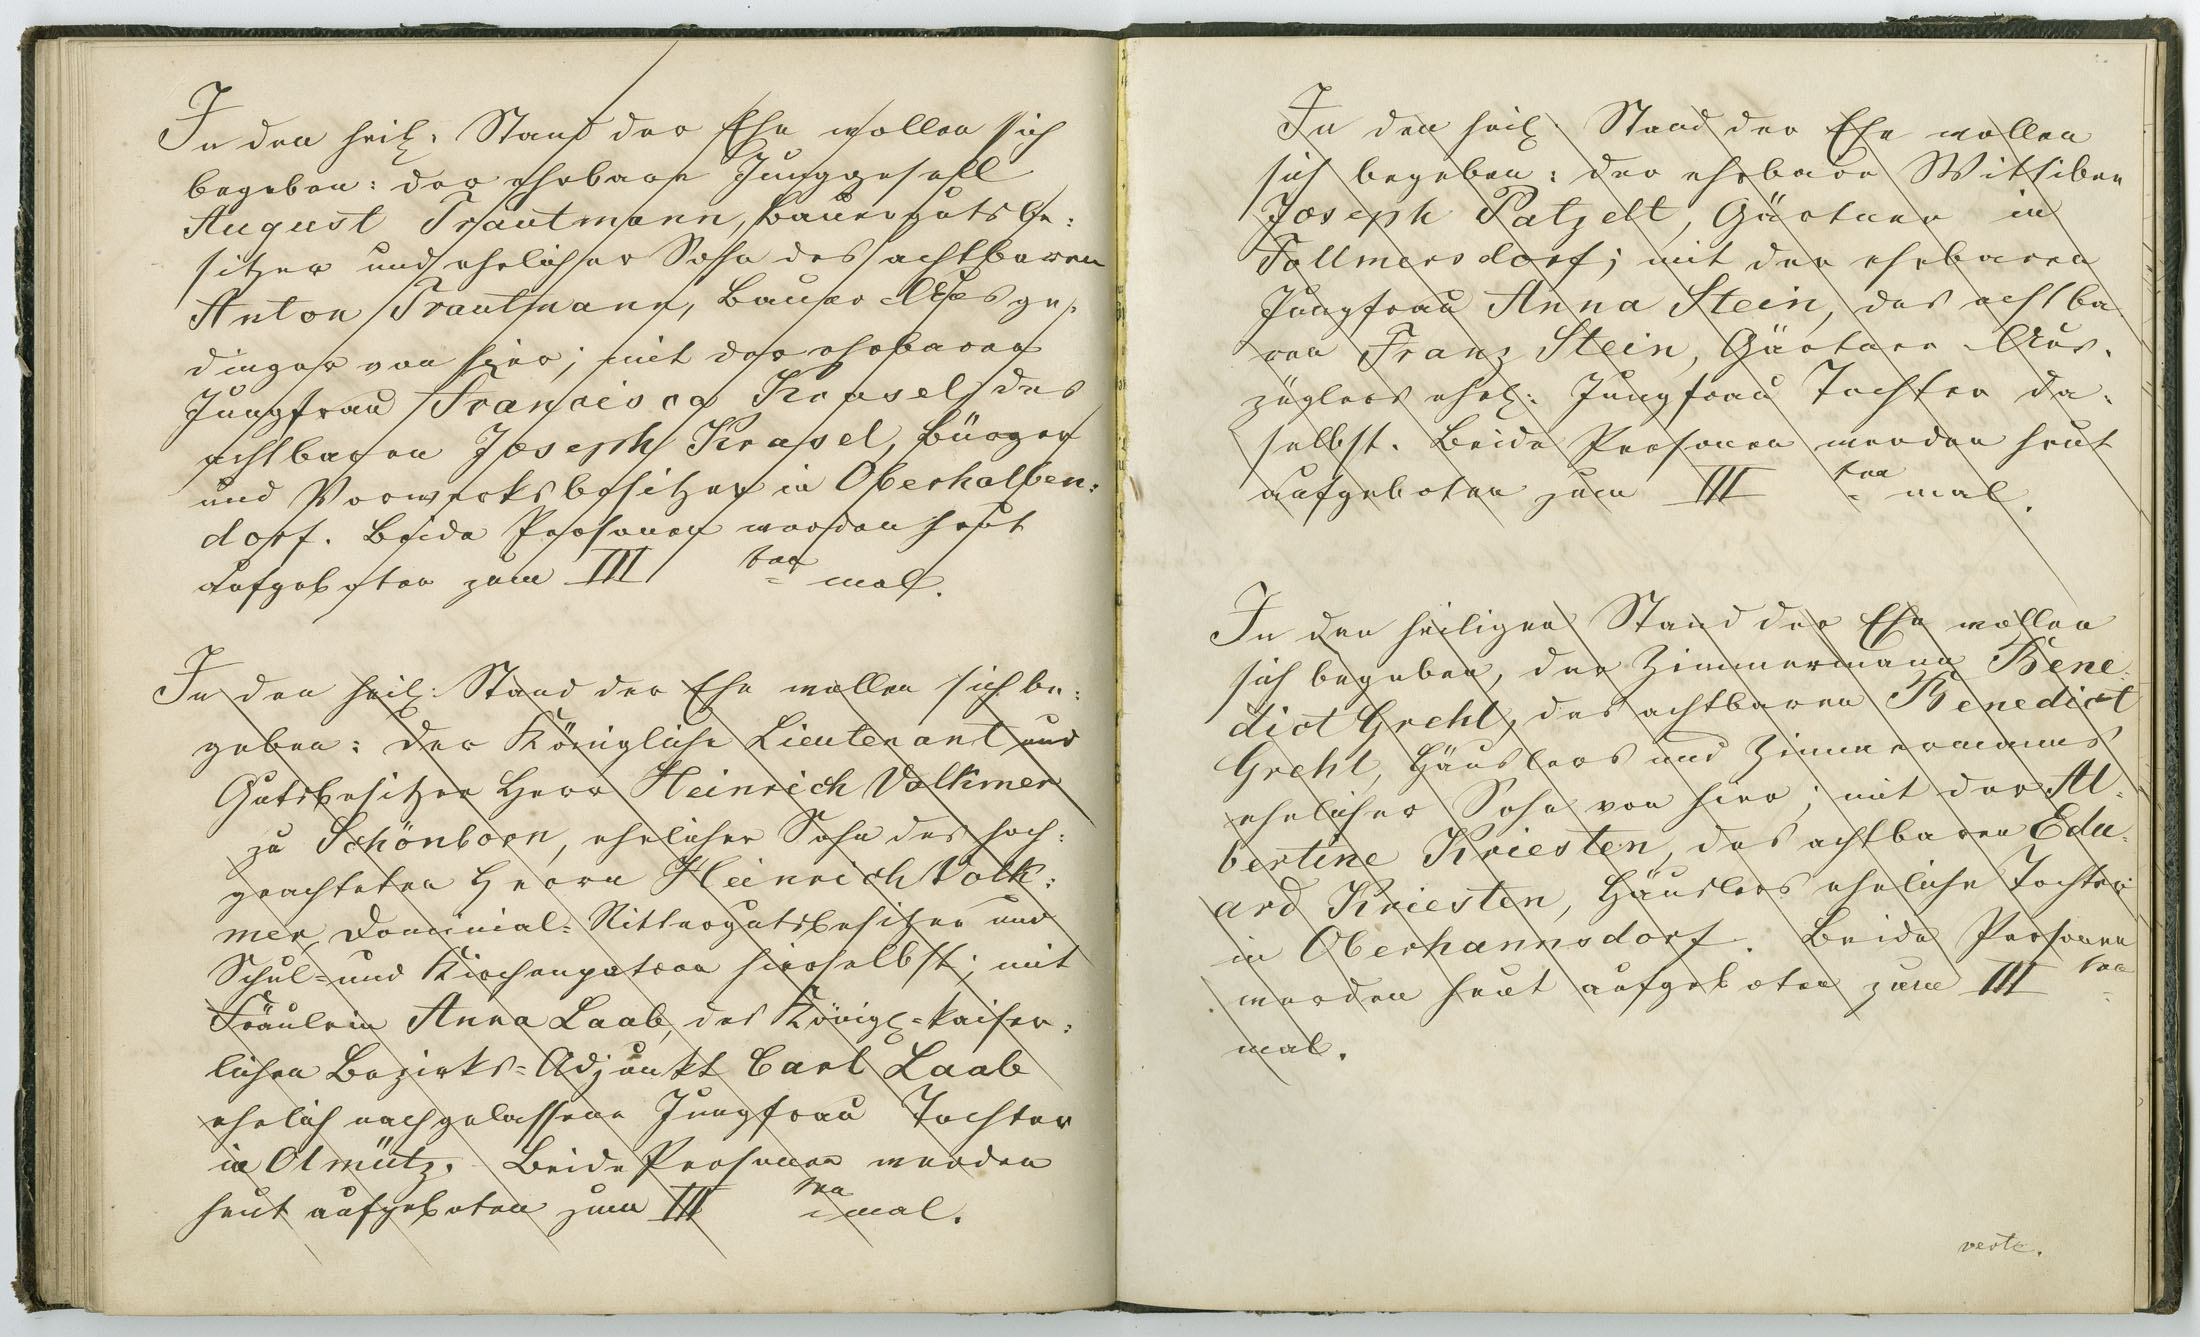 In den heil: Stand der Ehe wollen sich
begeben: der ehrbare Junggesell
August Trautmann, Bauergutsbe:
sitzer und ehelicher Sohn des achtbaren
Anton Trautmann, Bauer-Ausge:
dinger von hier; mit der ehrbaren
Jungfrau Francisca Krasel des
achtbaren Joseph Krasel, Bürger
und Vorwerksbesitzer in Oberhalben:
dorf. Beide Personen werden heut
aufgeboten zum III ten = mal.
In den heil: Stand der Ehe wollen sich be:
geben: der Königliche Lieutenant und
Gutsbesitzer Herr Heinrich Volkmer
zu Schönborn, ehelicher Sohn des hoch:
geachteten Herrn Heinrich Volk:
mer, Dominial-Rittergutsbesitzer und
Schul- und Kirchenpatron hierselbst; mit
Fräulein Anna Laab, des Königl=kaiser:
lichen Bezirks=Adjunkt Carl Laab
ehelich nachgelassene Jungfrau Tochter
in Olmütz. Beide Personen werden
heut aufgeboten zum III ten = mal.
In den heil. Stand der Ehe wollen
sich begeben: der ehrbare Wittiber
Joseph Patzelt, Gärtner in
Follmersdorf; mit der ehrbaren
Jungfrau Anna Stein, des achtba
ren Franz Stein, Gärtner-Aus:
züglers ehel: Jungfrau Tochter da:
selbst. Beide Personen werden heut
aufgeboten zum III ten = mal.
In den heiligen Stand der Ehe wollen
sich begeben, der Zimmermann Bene:
dict Grehl, des achtbaren Benedict
Grehl, Häuslers und Zimmermanns
ehelicher Sohn von hier; mit der Al:
bertine Kriesten, des achtbaren Edu:
ard Kriesten, Häuslers eheliche Tochter
in Oberhannsdorf. Beide Personen
werden heut aufgeboten zum III ten =
mal.
verte.